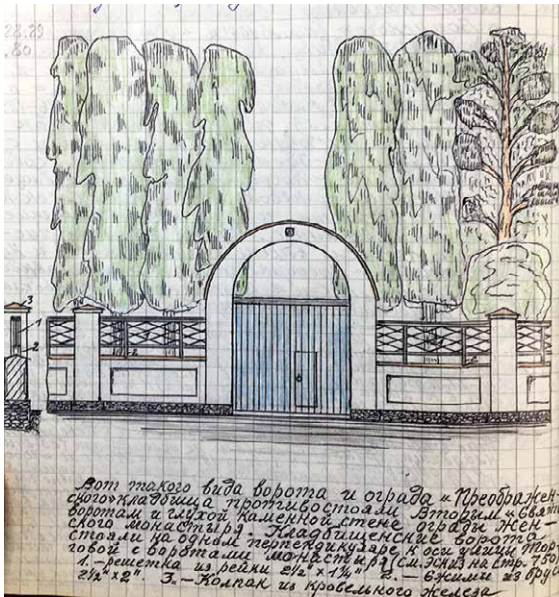 28.29
.80
3
1
2
Вот такого вида ворота и ограда "Преображен-
ского" кладбища противостояли "Вторым" "Святым"
воротам и глухой каменной стене ограды Жен-
ского монастыря. Кладбищенские ворота
стояли на одном перпендикуляре к оси улицы Тор-
говой с воротами монастыря (см. эскиз на стр. 750)
1. - решетка из рейки 2½" x 1¼" 2. - сжимы из
2½" x 2". 3. - Колпак из кровельного железа